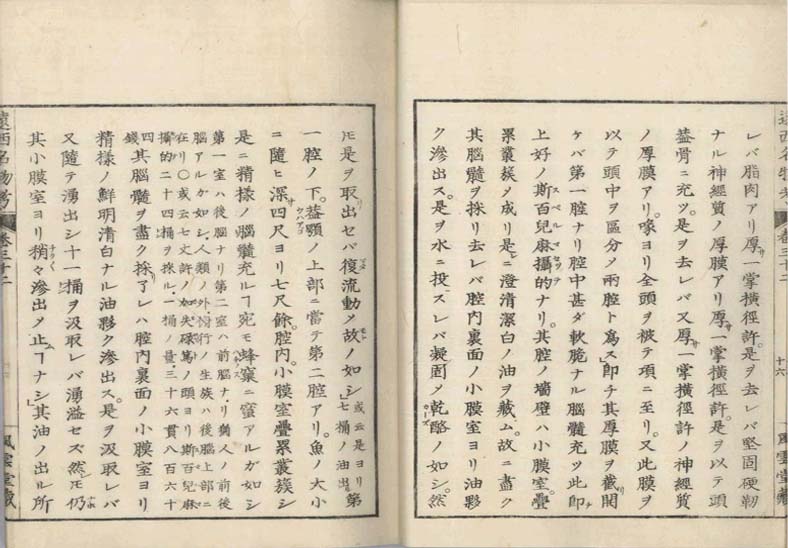 遠西名物考 巻三十二 十六 風雲堂蔵
レバ脂肉アリ厚サ一掌横徑許。是ヲ去レバ堅固硬韌
ナル神經質ノ厚膜アリ厚サ一掌横徑許。是ヲ以テ頭
葢骨ニ充ツ。是ヲ去レバ又厚サ一掌横徑許ノ神經質
ノ厚膜アリ。喙ヨリ全頭ヲ被テ項ニ至リ。又此膜ヲ
以テ頭中ヲ區分メ兩腔ト爲ス」即チ其厚膜ヲ截リ開
ケバ第一腔ナリ腔中甚ダ軟脆ナル腦髓充ツ此即
上好ノ斯百兒麻攝的ナリ。其腔ノ墻壁ハ小膜室。疊
累叢簇メ成リ是ニ澄清潔白ノ油ヲ藏ム。故ニ盡ク
其腦髓ヲ採リ去レバ腔内裏面ノ小膜室ヨリ油夥
ク滲出ス。是ヲ水ニ投スレバ凝固メ乾酪ノ如シ。然
𪜈是ヲ取出セバ復流動メ故ノ如シ」或云是ヨリ七桶ノ油出 第
一腔ノ下。葢顎ノ上部ニ當テ第二腔アリ。魚ノ大小
ニ隨ヒ深サ四尺ヨリ七尺餘。腔内。小膜室疊累叢簇シ
是ニ精様ノ腦髓充ルヿ宛モ蜂窠ニ蜜アルガ如シ
第一室ハ後腦ナリ第二室ハ前腦ナリ猶人ノ前後
腦アルガ如シ、人類ノ外、横行ノ生族ハ後腦上部ニ
在リ〇或云七丈許ノ加失碌篤ノ頭ヨリ斯百兒麻
攝的二十四桶ヲ採ル、一桶ノ量、三十六貫八百六十
四錢 其腦髓ヲ盡ク採リ了レハ腔内裏面ノ小膜室ヨリ
精様ノ鮮明清白ナル油夥ク滲出ス。是ヲ汲取レバ
又隨テ湧出シ十一桶ヲ汲取レバ湧溢セズ然𪜈仍
其小膜室ヨリ稍々滲出メ止ムヿナシ」其油ノ出ル所
遠西名物考 巻三十二 風雲堂蔵